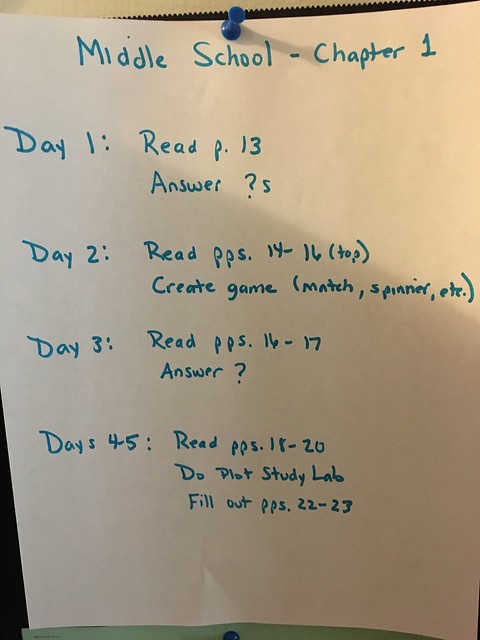 Middle School - Chapter 1
Day 1: Read p. 13
Answer ?s
Day 2: Read pps. 14-16 (top)
Create game (match, spinner, etc.)
Day 3: Read pps. 16-17
Answer ?
Days 4-5: Read pps. 18-20
Do Plot Study Lab
Fill out pps. 22-23